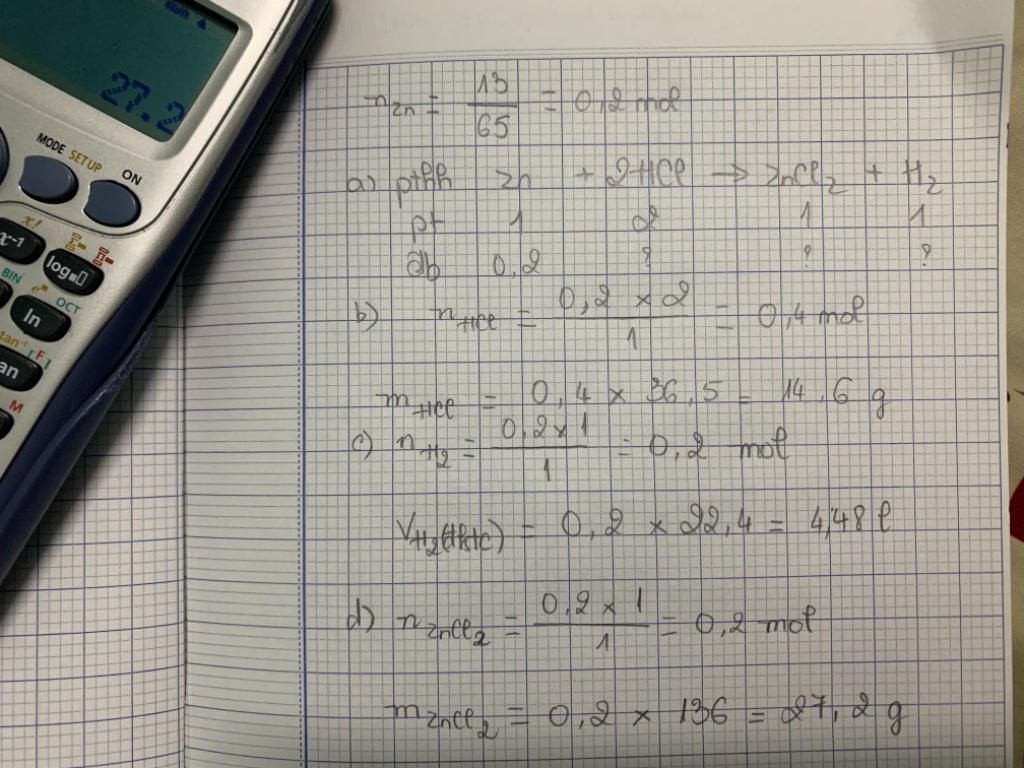 Math ▲
27.2
MODE SETUP
ON
x!
x⁻¹
log
BIN
OCT
ln
tan⁻¹
F
an
M
n Zn = 13/65 = 0,2 mol
a) pthh Zn + 2HCl → ZnCl₂ + H₂
pt 1 2 1 1
đb 0,2 ? ? ?
b) n HCl = 0,2 x 2 / 1 = 0,4 mol
m HCl = 0,4 x 36,5 = 14,6 g
c) n H₂ = 0,2 x 1 / 1 = 0,2 mol
V H₂(đktc) = 0,2 x 22,4 = 4,48 l
d) n ZnCl₂ = 0,2 x 1 / 1 = 0,2 mol
m ZnCl₂ = 0,2 x 136 = 27,2 g